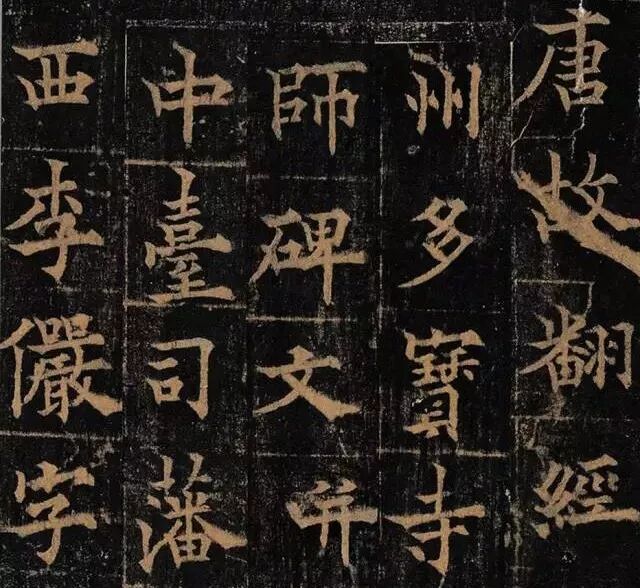 唐故翻經
州多寶寺
師碑文并
中臺司藩
西李儼字